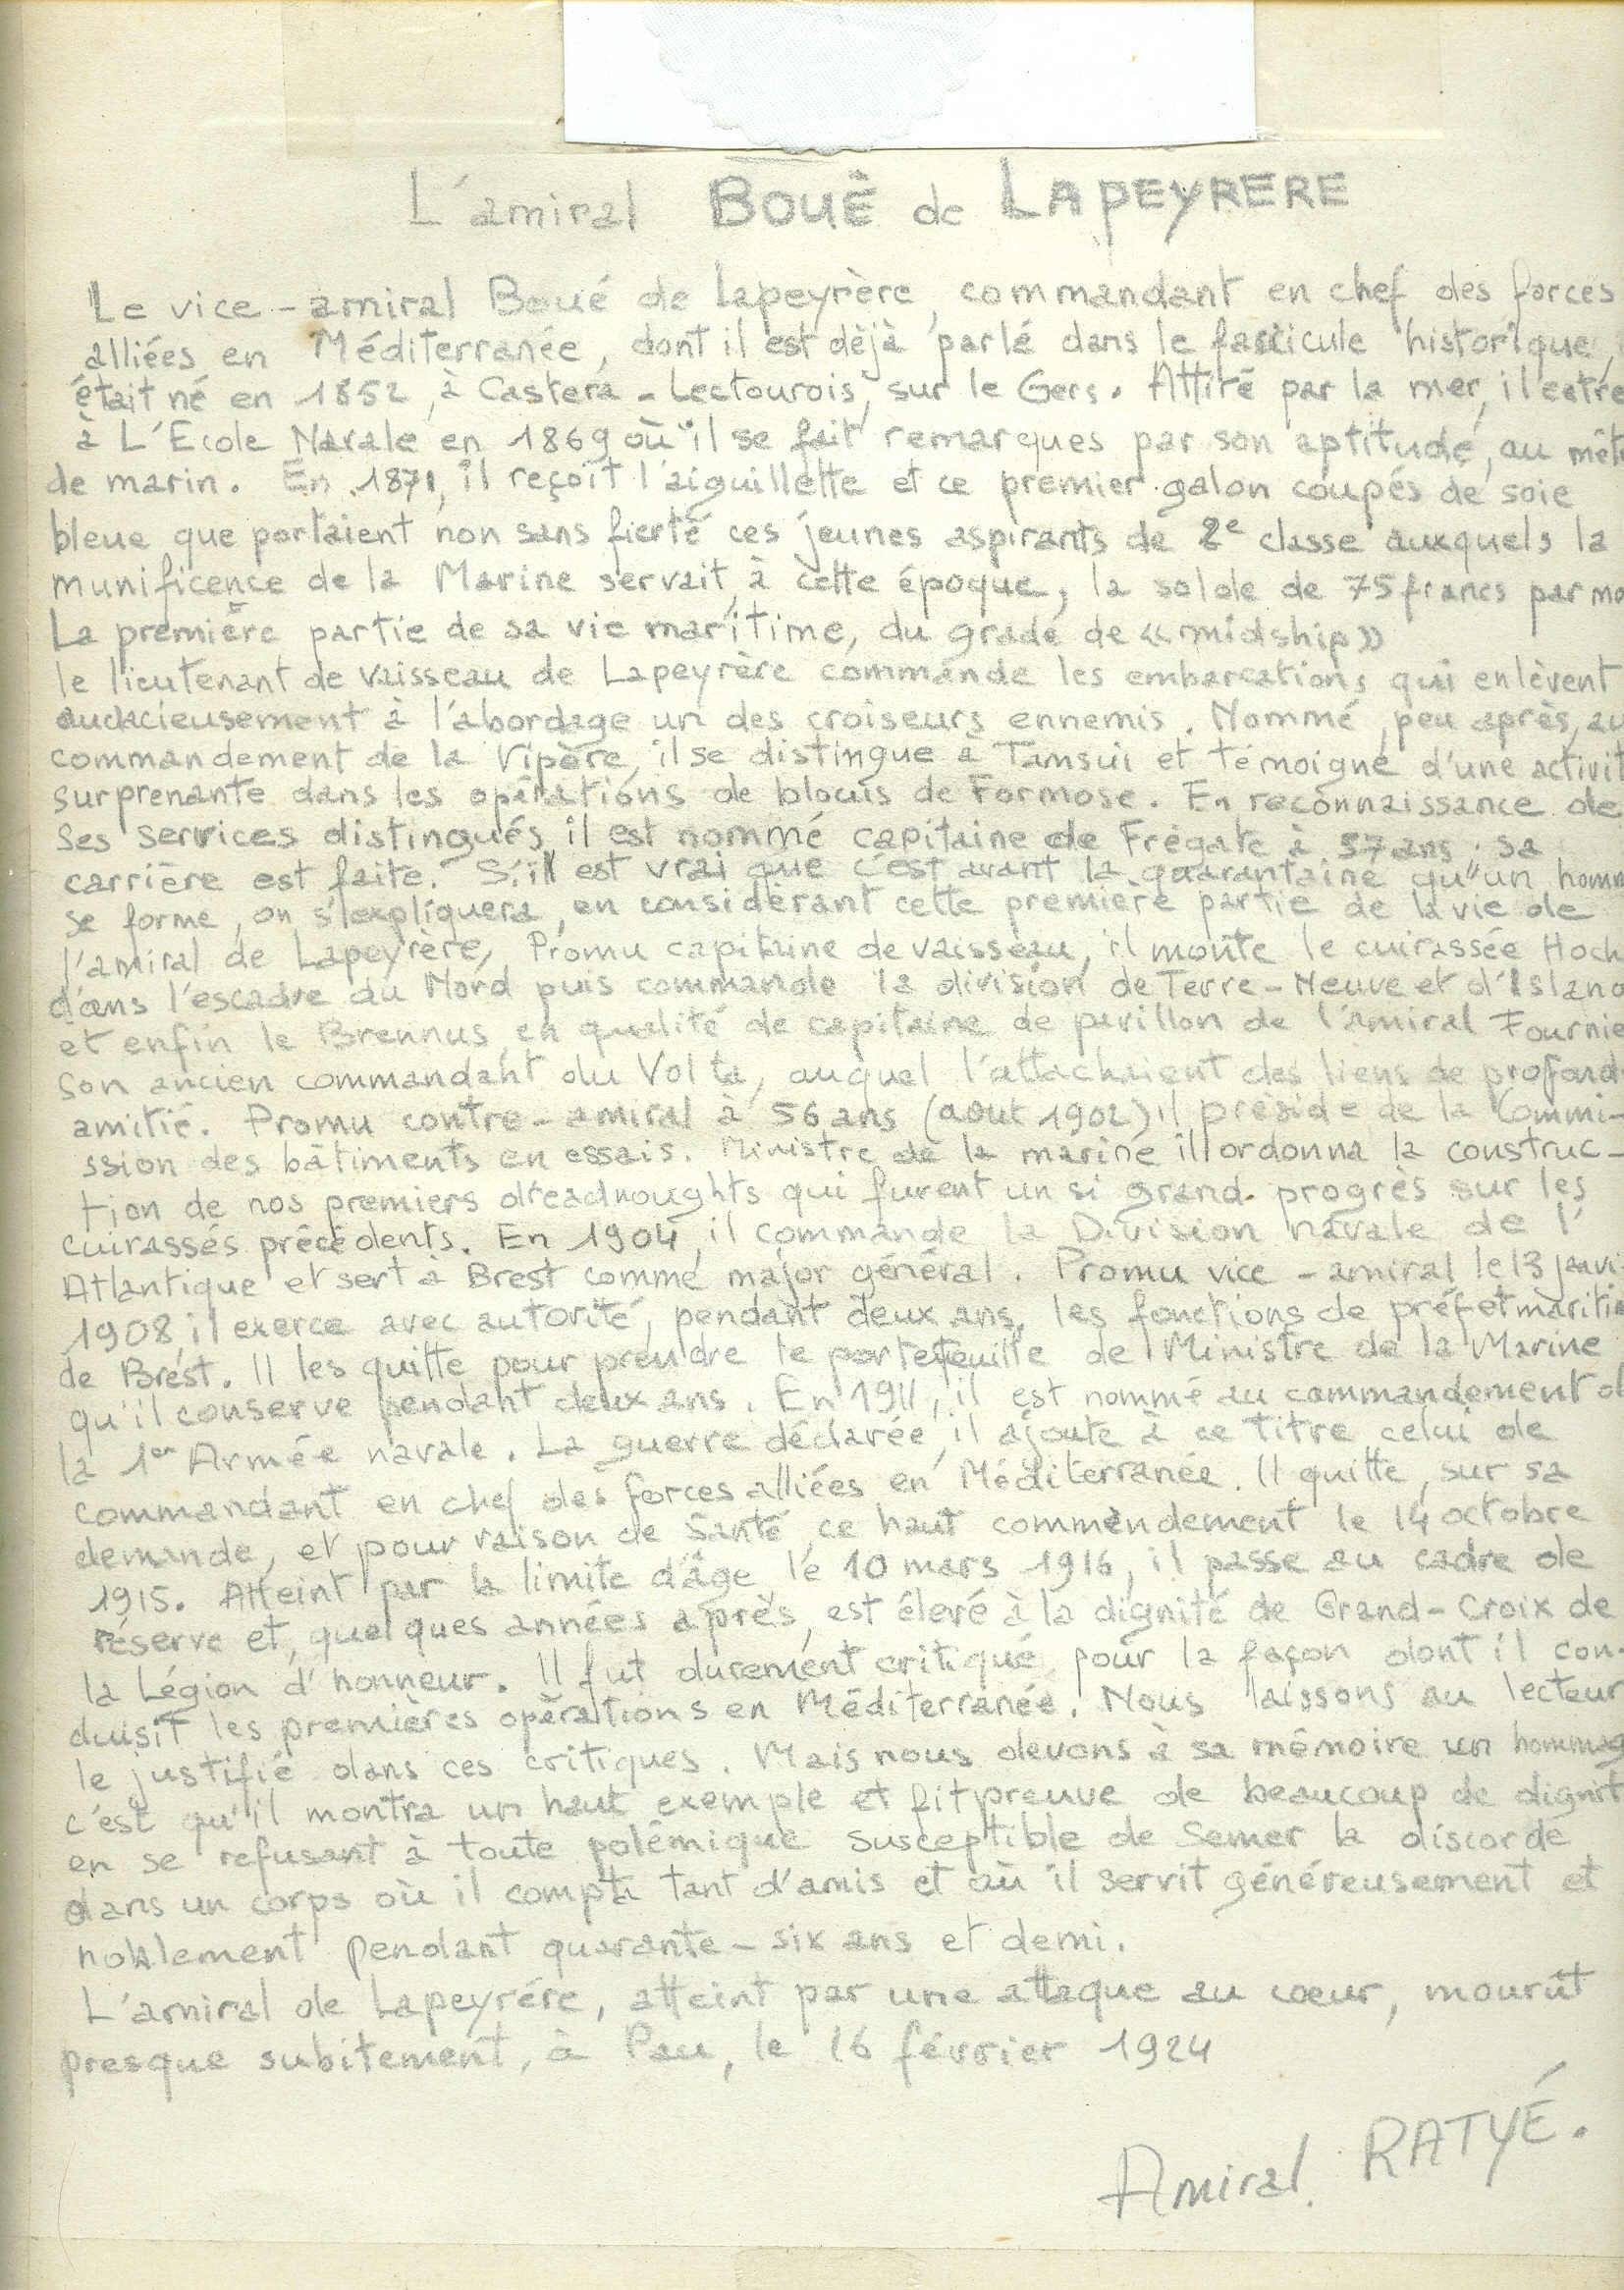 L'amiral BOUÊ de LAPEYRERE
Le vice-amiral Boué de Lapeyrère, commandant en chef des forces
alliées en Méditerranée, dont il est dèjà parlé dans le fascicule historique,
était né en 1852, à Castera-Lectourois, sur le Gers. Attiré par la mer, il entre
à L'Ecole Navale en 1869 où il se fait remarques par son aptitude, au mét
de marin. En 1871, il reçoit l'aiguillette et ce premier galon coupés de soie
bleue que portaient non sans fierté ces jeunes aspirants de 2e classe auxquels la
munificence de la Marine servait, à cette époque, la solde de 75 francs par mo
La première partie de sa vie maritime, du grade de «midship»
le lieutenant de vaisseau de Lapeyrère commande les embarcations qui enlèvent
audacieusement à l'abordage un des croiseurs ennemis. Nommé, peu après, au
commandement de la Vipère, il se distingue à Tamsui et témoigne d'une activit
surprenante dans les opérations de blocus de Formose. En reconnaissance de
ses services distingués, il est nommé capitaine de Frégate à 37 ans; sa
carrière est faite. S'il est vrai que c'est avant la quarantaine qu'un homm
se forme, on s'expliquera, en considérant cette première partie de la vie de
l'amiral de Lapeyrère, Promu capitaine de vaisseau, il monte le cuirassée Hoch
dans l'escadre du Nord puis commande la division de Terre-Neuve et d'Island
et enfin le Brennus, en qualité de capitaine de pavillon de l'amiral Fournie
son ancien commandant du Volta, auquel l'attachaient des liens de profond
amitié. Promu contre-amiral à 56 ans (aout 1902) il préside de la Commi-
ssion des bâtiments en essais. Ministre de la marine il ordonna la construc-
tion de nos premiers dreadnoughts qui furent un si grand progrès sur les
cuirassés précédents. En 1904, il commande la Division navale de l'
Atlantique et sert à Brest comme major général. Promu vice-amiral le 13 janvi
1908, il exerce avec autorité, pendant deux ans, les fonctions de préfet mariti
de Brest. Il les quitte pour prendre le portefeuille de Ministre de la Marine
qu'il conserve pendant deux ans. En 1911, il est nommé au commandement d
la 1er Armée navale. La guerre déclarée, il ajoute à ce titre celui de
commandant en chef des forces alliées en Méditerranée. Il quitte, sur sa
demande, et pour raison de Santé, ce haut commendement le 14 octobre
1915. Atteint par la limite d'âge, le 10 mars 1916, il passe au cadre de
réserve et, quelques années après, est élevé à la dignité de Grand-Croix de
la Légion d'honneur. Il fut durement critiqué pour la façon dont il con-
duisit les premières opérations en Méditerranée. Nous laissons au lecteur
le justifié dans ces critiques. Mais nous devons à sa mémoire un hommag
c'est qu'il montra un haut exemple et fit preuve de beaucoup de dignit
en se refusant à toute polémique susceptible de semer la discorde
dans un corps où il compta tant d'amis et où il servit généreusement et
noblement pendant quarante-six ans et demi.
L'amiral de Lapeyrére, atteint par une attaque au coeur, mourût
presque subitement, à Pau, le 16 février 1924
Amiral. RATYÉ.